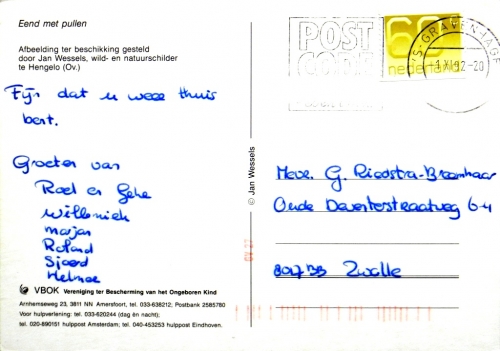 Eend met pullen
Afbeelding ter beschikking gesteld
door Jan Wessels, wild- en natuurschilder
te Hengelo (Ov.)
Fijn dat u weer thuis
bent.
Groeten van
Roel en
Willemiek
Marjan
Roland
Sjoerd
VBOK Vereniging ter Bescherming van het Ongeboren Kind
Arnhemseweg 23, 3811 NN Amersfoort, tel. 033-638212; Postbank 2585780
Voor hulpverlening: tel. 033-620244 (dag én nacht);
tel. 020-890151 hulppost Amsterdam; tel. 040-453253 hulppost Eindhoven.
© Jan Wessels
POST
CODE
60
nederland
'S-GRAVENHAGE
XI.92-20
Mevr. G. Riedstra-Bromhaar
Oude Deventerstraatweg
8017 BB Zwolle